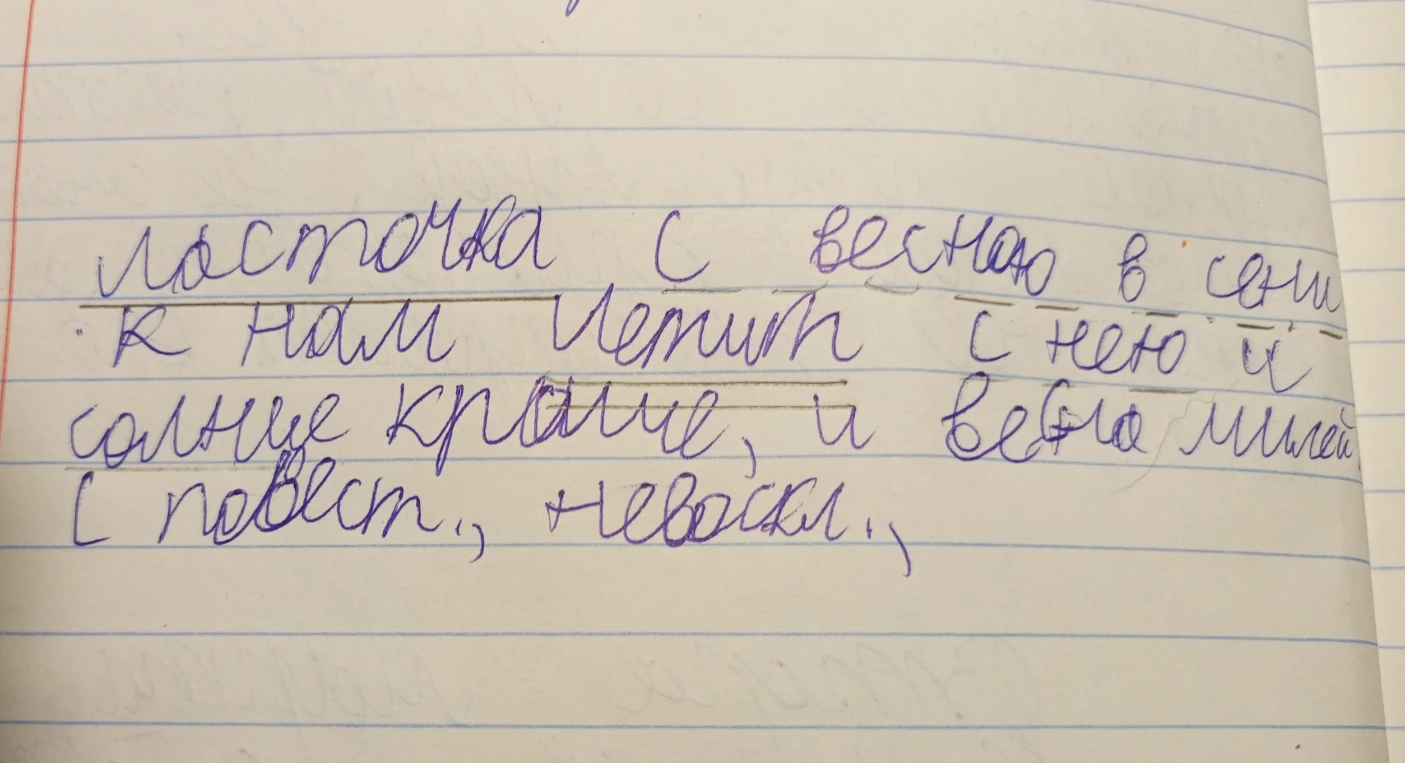 ласточка с весною в сени
к нам летит с нею и
солнце краше, и весна милей
с повест., невоскл.,